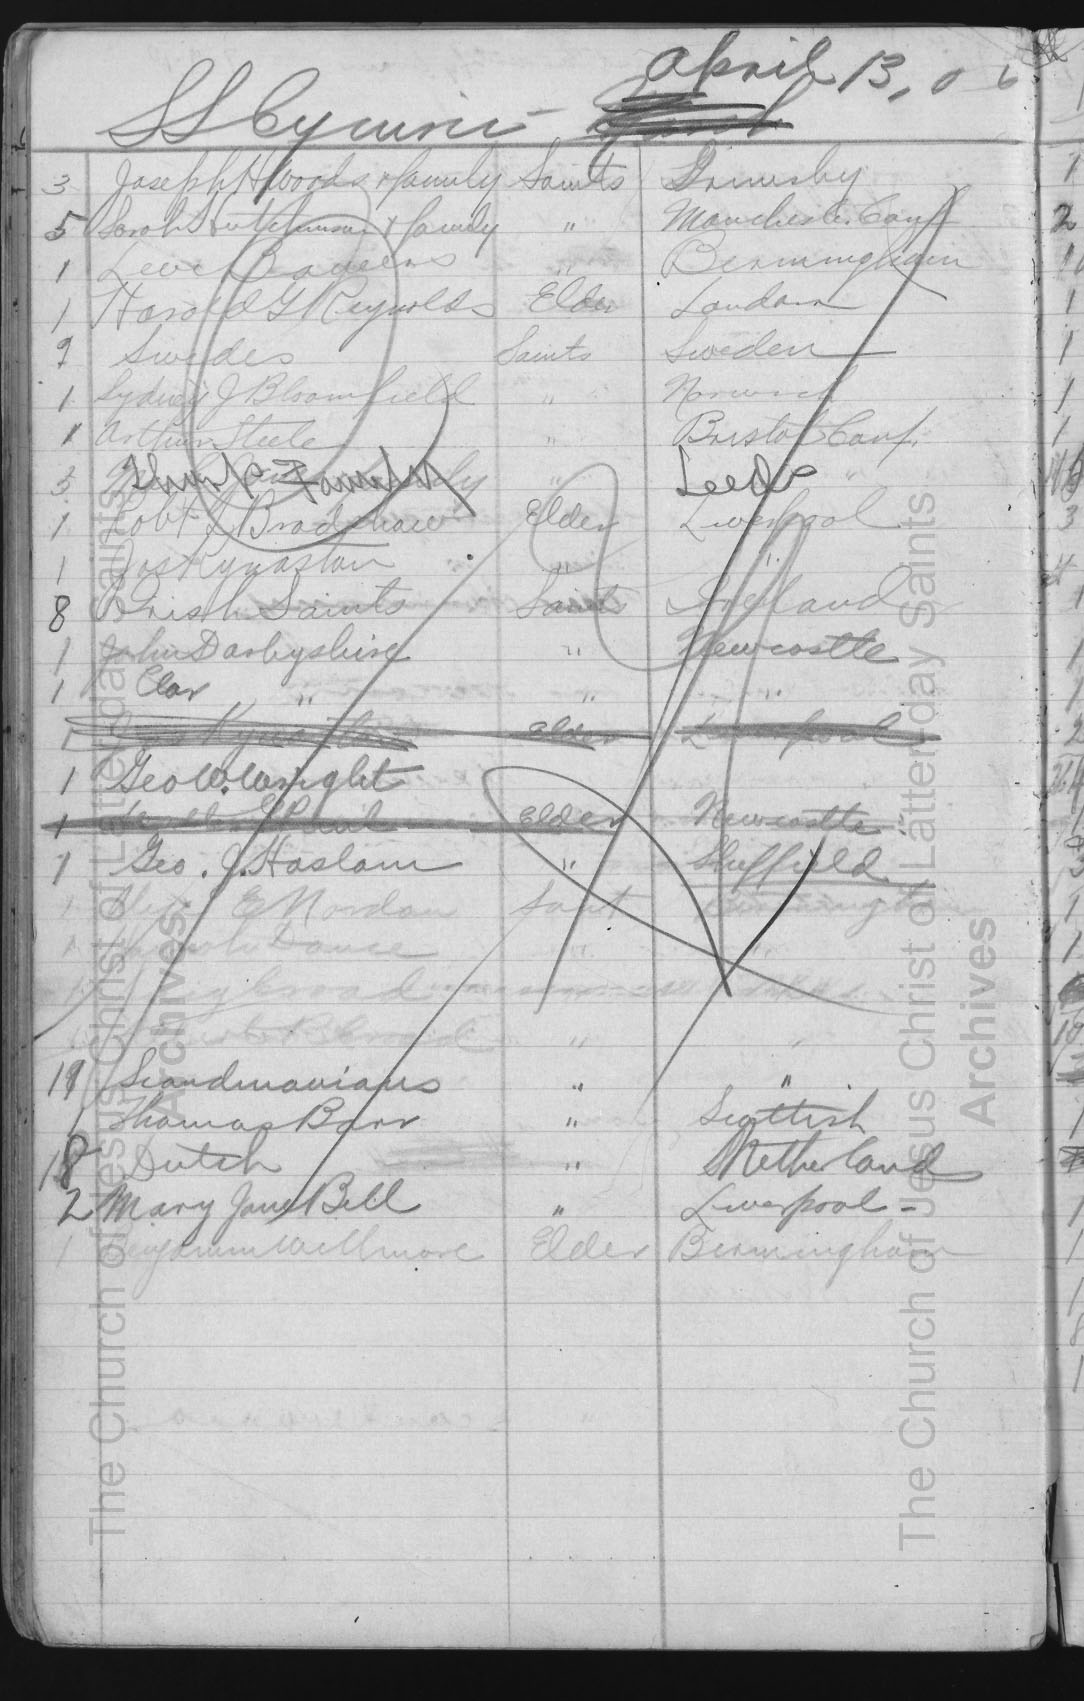 April 13, 06
SS Cymric -
3 Joseph H Woods & family Saints Grimsby
5 Sarah Hutchinson & family " Manchester Conf
1 Bowers " Birmingham
1 Harold G Reynolds Elder London
9 Swedes Saints Sweden
1 Sydney J Bloomfield " Norwich
1 Arthur Steele " Bristol Conf.
3 " Leeds
1 Robt L Bradshaw Elder Liverpool
1 Jos Kynaston " "
8 Irish Saints Saints Ireland
1 John Darbyshire " Newcastle
1 Clar " " "
1 Kynaston Elder Liverpool
1 Geo W. Wright
1 Elder Newcastle
1 Geo. J. Haslam " Sheffield
1 E Nordan Saint Birmingham
1 Dance " "
1
" "
19 Scandinavians " "
1 Thomas Barr " Scottish
18 Dutch " Netherland
2 Mary Jane Bell " Liverpool -
1 Benjamin Willmore Elder Birmingham
The Church of Jesus Christ of Latter-day Saints
Archives
The Church of Jesus Christ of Latter-day Saints
Archives